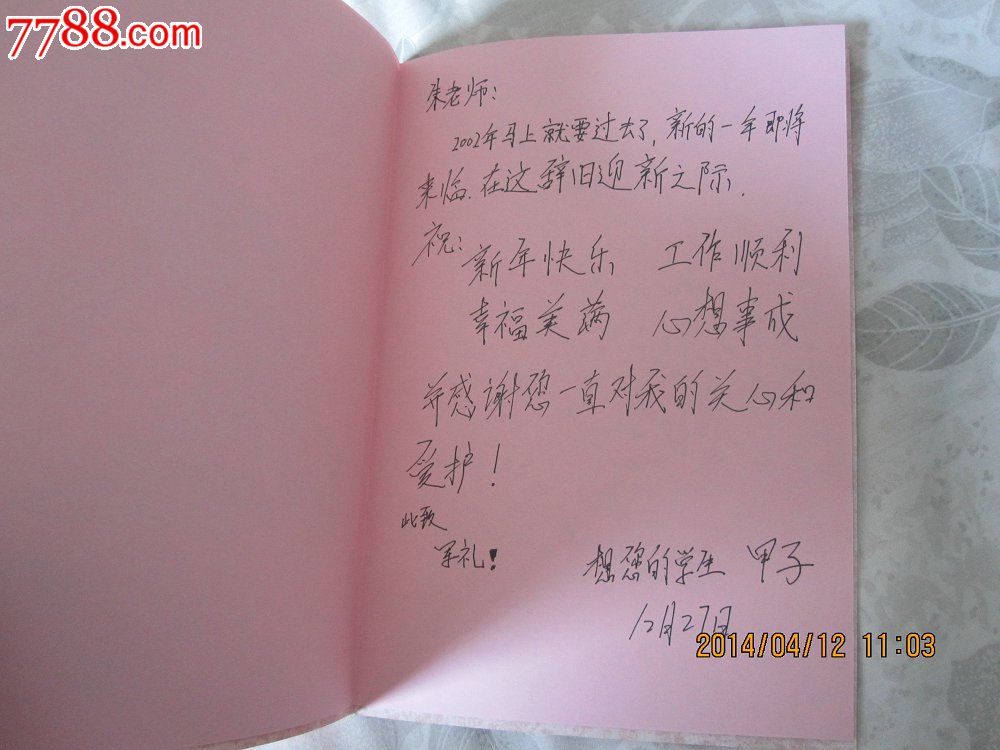 7788.com
朱老师:
2002年马上就要过去了,新的一年即将
来临.在这辞旧迎新之际.
祝:
新年快乐 工作顺利
幸福美满 心想事成
并感谢您一直对我的关心和
爱护!
此致
军礼!
想您的学生 甲子
12月27日
2014/04/12 11:03